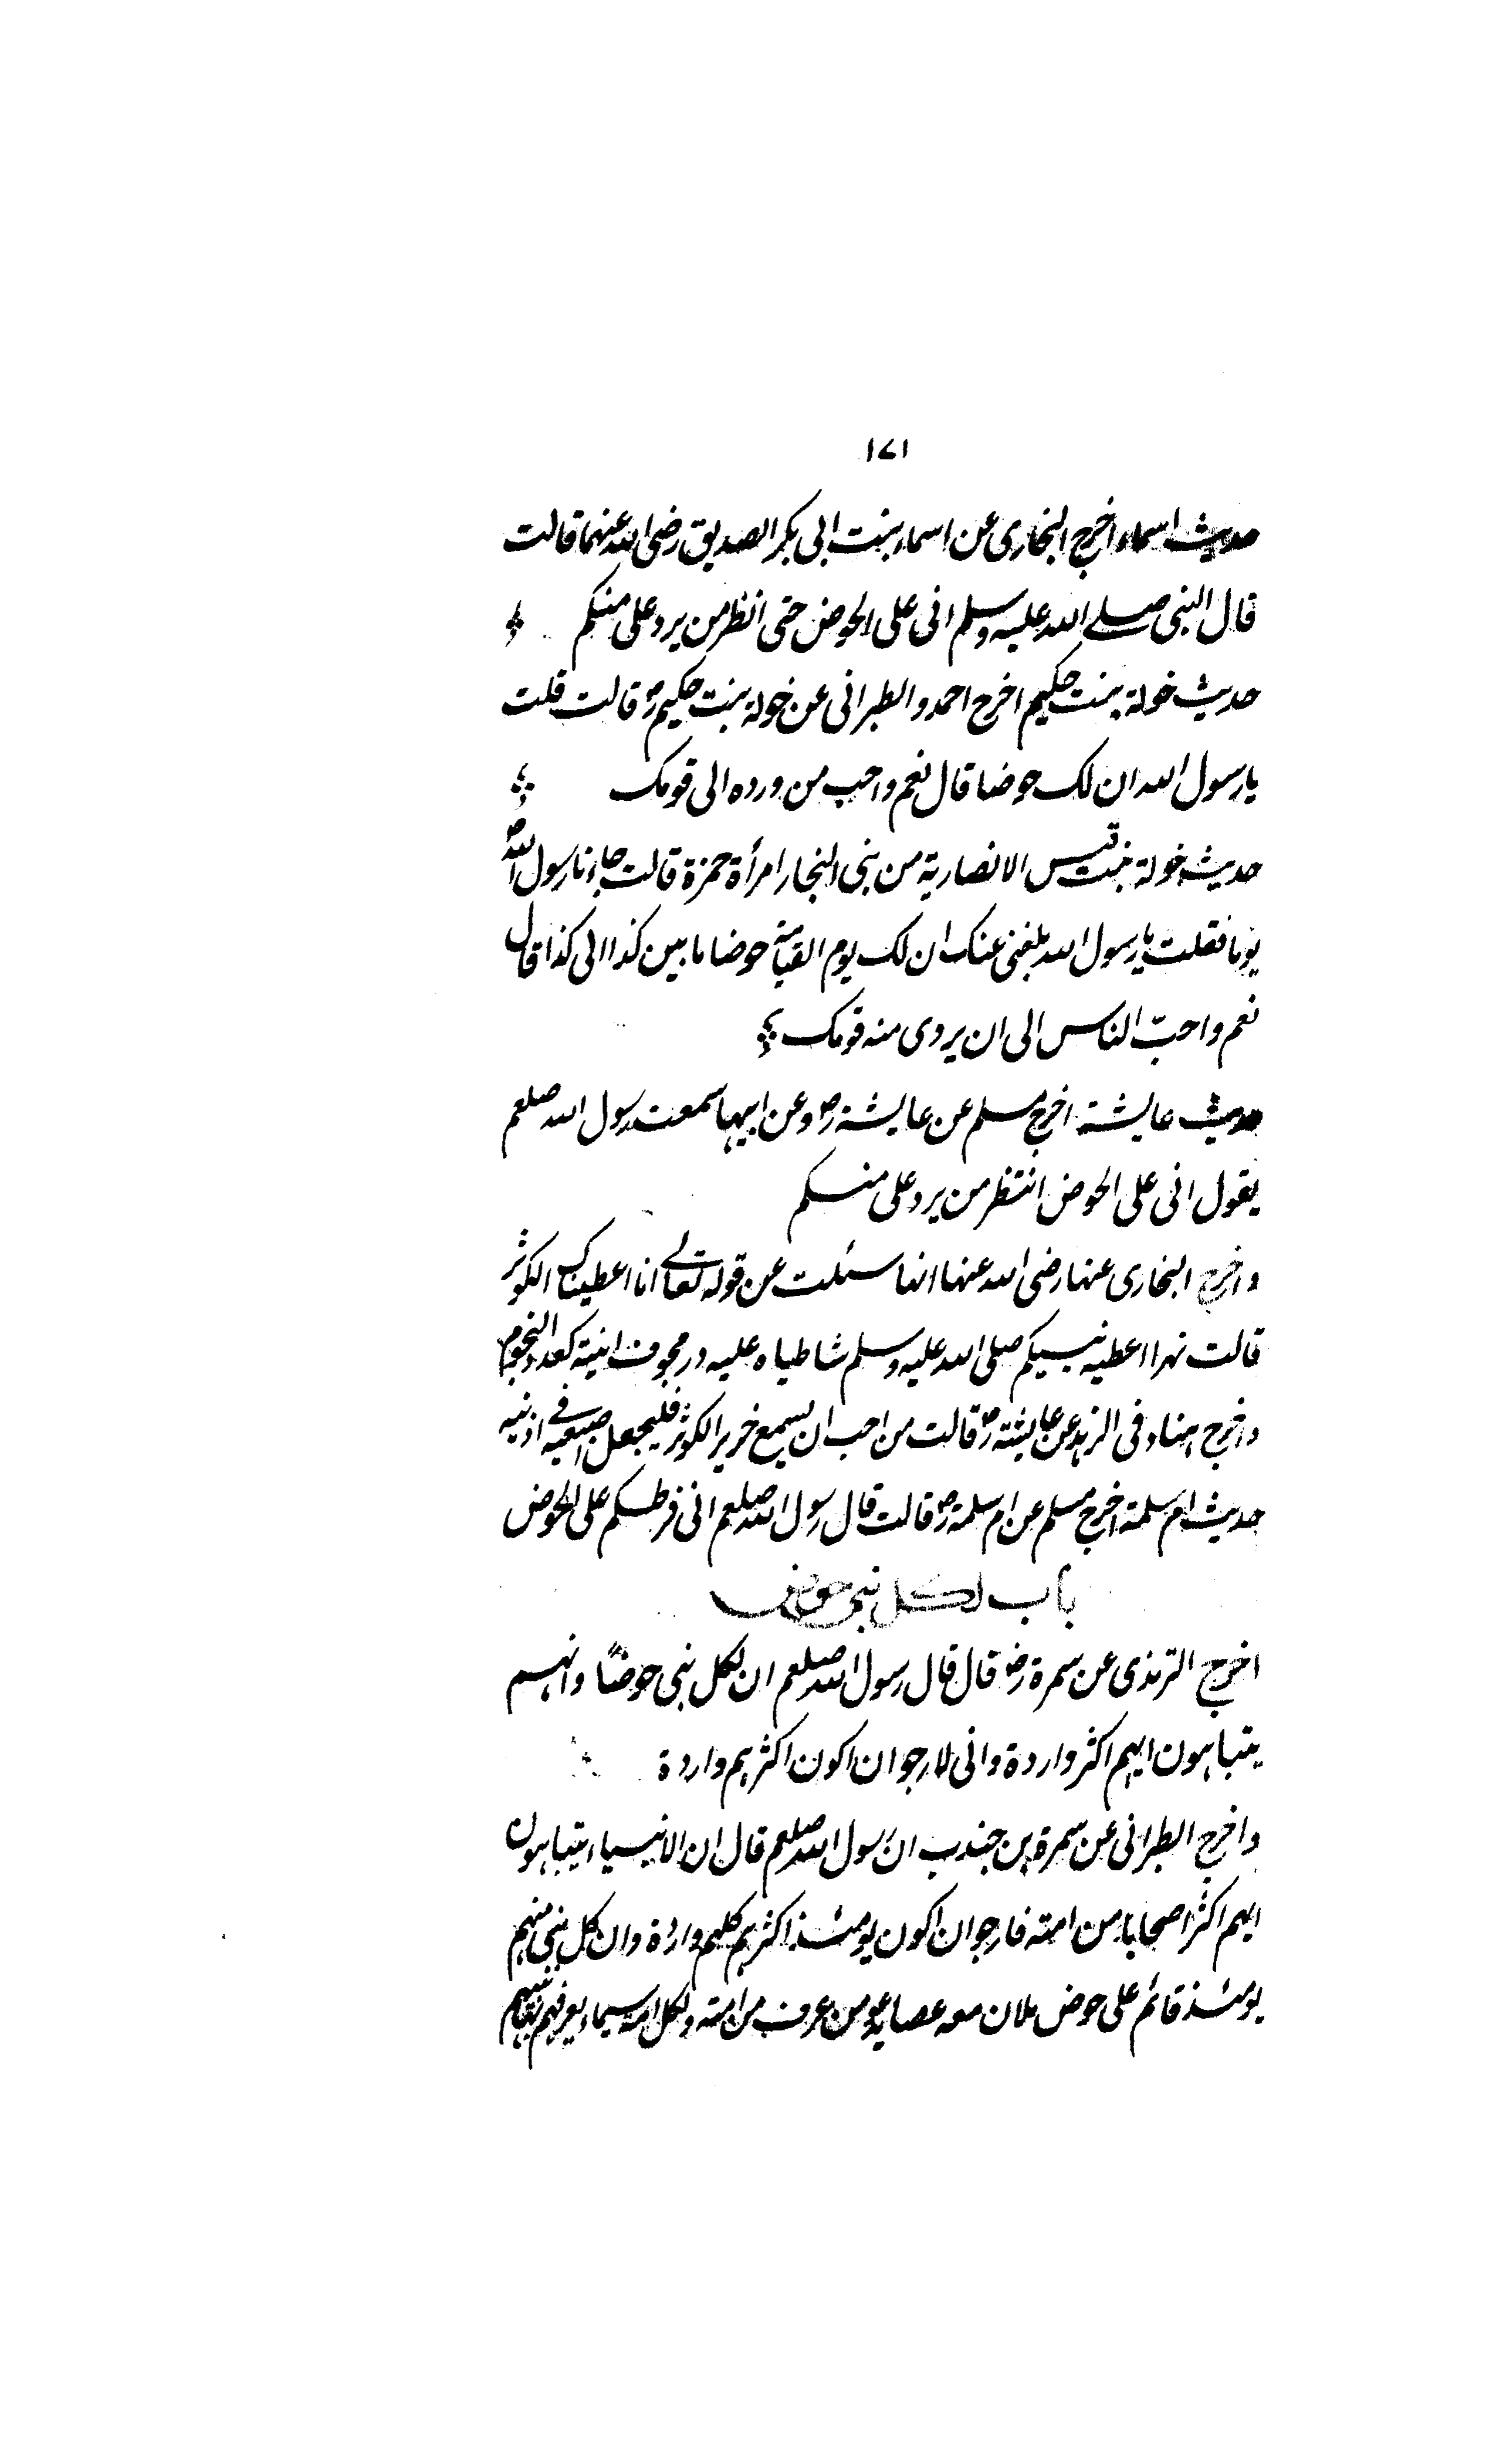 ۱۷۱
حدیث اسماء اخرج البخاری عن اسماء بنت ابی بکر الصدیق رضی الله عنهما قالت
قال النبی صلے الله علیه وسلم انی علی الحوض حتی انظر من یرد علی منکم
حدیث خولة بنت حکیم اخرج احمد والطبرانی عن خولة بنت حکیم رض قالت قلت
یا رسول الله ان لک حوضا قال نعم واحب من ورده الی قومک
حدیث خولة بنت قیس الانصاریة من بنی النجار امرأة حمزة قالت جاءنا رسول الله ص
یوما فقلت یا رسول الله بلغنی عنک ان لک یوم القیامة حوضا ما بین کذا الی کذا قال
نعم واحبّ الناس الی ان یروی منه قومک
حدیث عایشة اخرج مسلم عن عایشة رض وعن ابیها سمعت رسول الله صلعم
یقول انی علی الحوض انتظر من یرد علی منکم
واخرج البخاری عنها رضی الله عنها انها سئلت عن قوله تعالے انا اعطیناک الکوثر
قالت نهرا اعطیه نبیکم صلی الله علیه وسلم شاطیاه علیه در مجوف انیته کعدد النجوم
واخرج هناد فی الزهد عن عایشة رض قالت من احب ان یسمع خریر الکوثر فلیجعل اصبعیه فے اذنیه
حدیث ام سلمة اخرج مسلم عن ام سلمة رض قالت قال رسول الله صلعم انی فرطکم علی الحوض
باب لکل نبی حوض
اخرج الترمذی عن سمرة رض قال قال رسول الله صلعم ان لکل نبی حوضًا وانهم
یتباهون ایهم اکثر واردة وانی لارجو ان اکون اکثرهم واردة
واخرج الطبرانی عن سمرة بن جندب ان رسول الله صلعم قال ان الانبیاء یتباهون
ایهم اکثر اصحابا من امته فارجو ان اکون یومئذ اکثرهم کلهم واردة وان کل نبی منهم
یومئذ قائم علی حوض ملان معه عصا یدعو من عرف من امته ولکل امة سیماء یعرفهم بها نبیهم